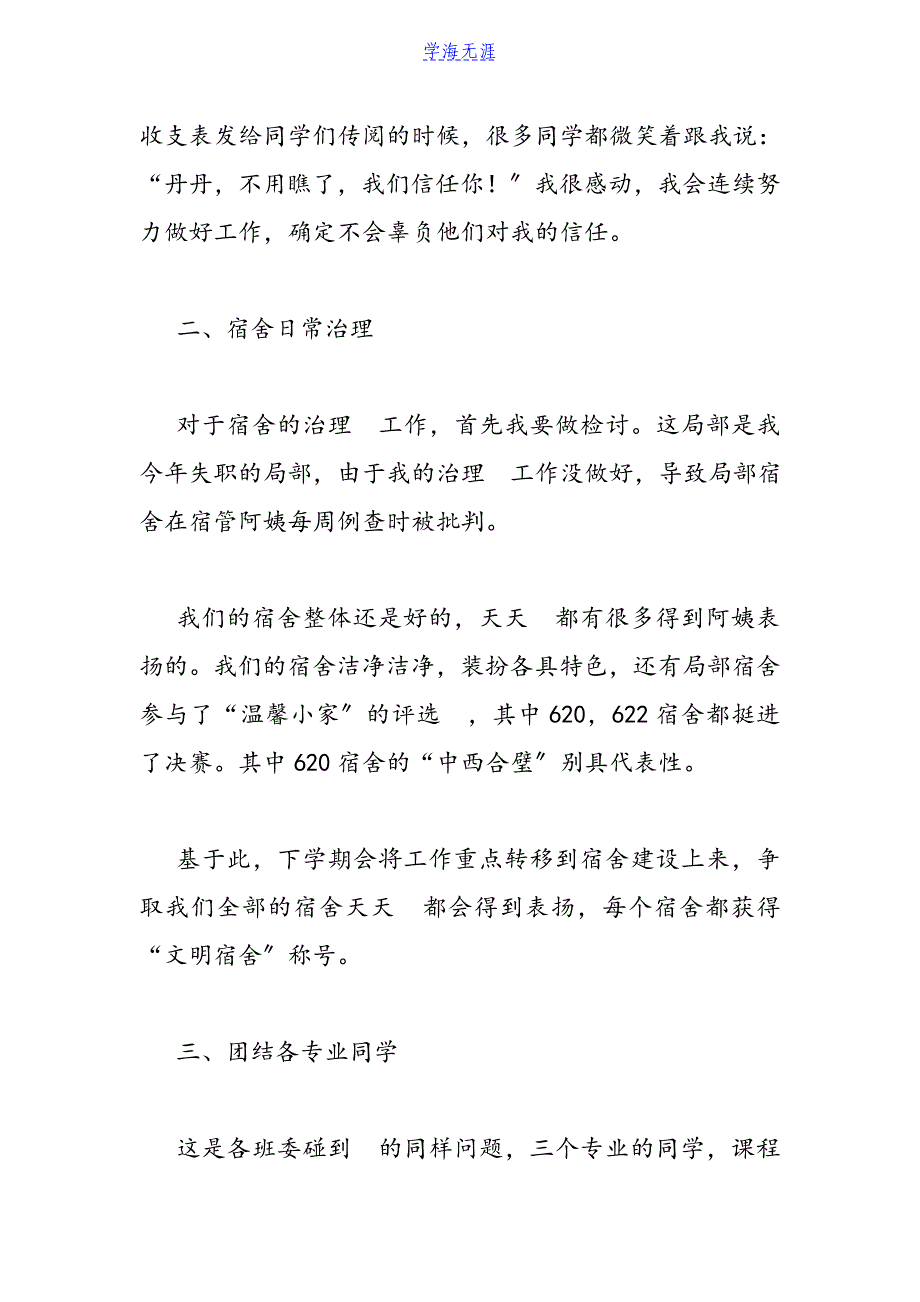 学海无涯
收支表发给同学们传阅的时候，很多同学都微笑着跟我说：
“丹丹，不用瞧了，我们信任你！〞我很感动，我会连续努
力做好工作，确定不会辜负他们对我的信任。
二、宿舍日常治理
对于宿舍的治理　工作，首先我要做检讨。这局部是我
今年失职的局部，由于我的治理　工作没做好，导致局部宿
舍在宿管阿姨每周例查时被批判。
我们的宿舍整体还是好的，天天　都有很多得到阿姨表
扬的。我们的宿舍洁净洁净，装扮各具特色，还有局部宿舍
参与了“温馨小家〞的评选　，其中 620，622 宿舍都挺进
了决赛。其中 620 宿舍的“中西合璧〞别具代表性。
基于此，下学期会将工作重点转移到宿舍建设上来，争
取我们全部的宿舍天天　都会得到表扬，每个宿舍都获得
“文明宿舍〞称号。
三、团结各专业同学
这是各班委碰到　的同样问题，三个专业的同学，课程